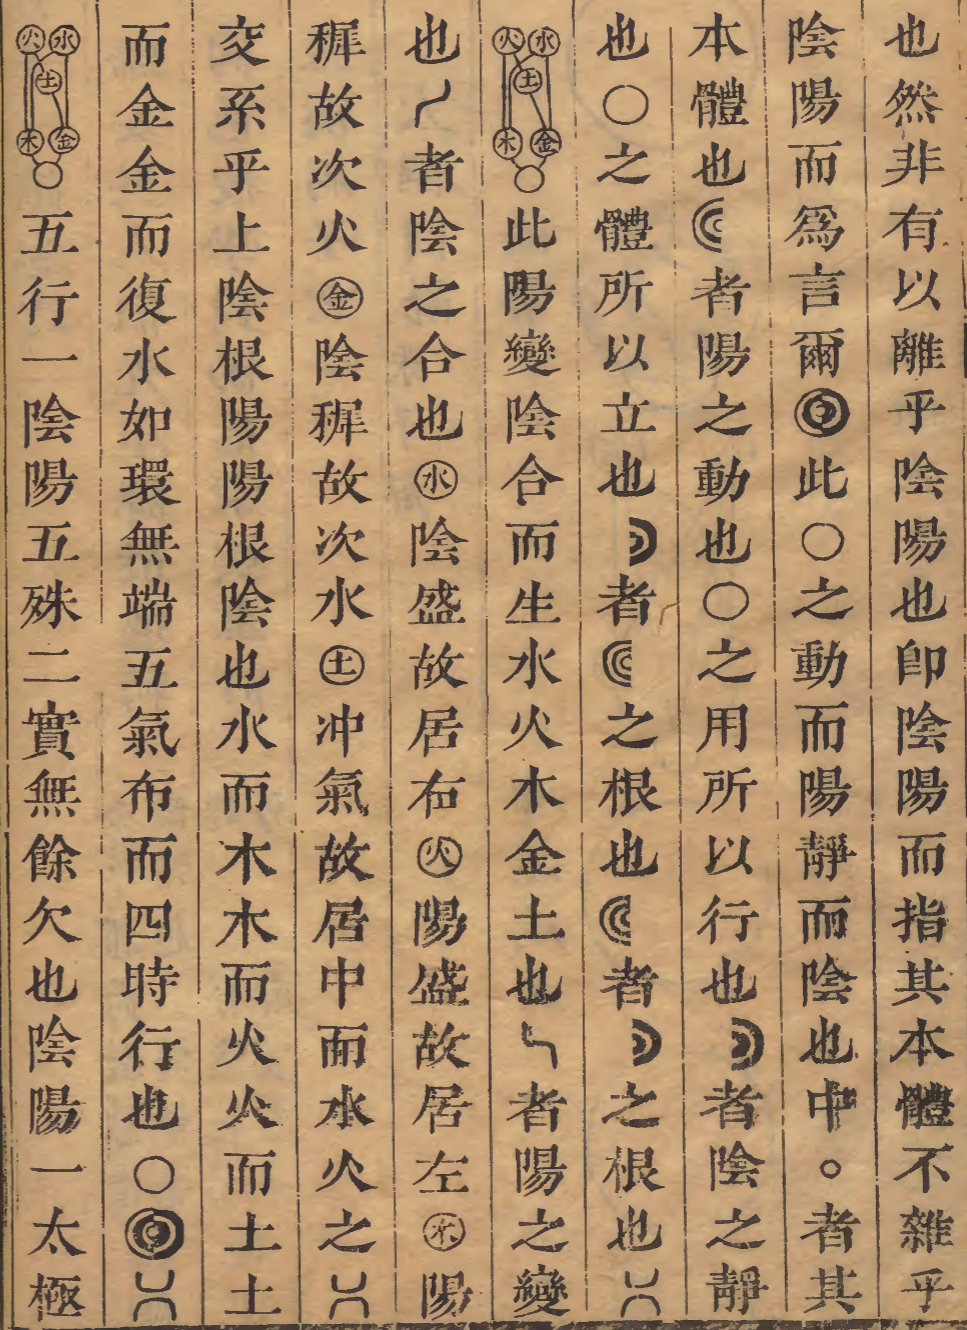 也然非有以離乎陰陽也卽陰陽而指其本體不雜乎
陰陽而爲言爾此○之動而陽靜而陰也中○者其
本體也者陽之動也○之用所以行也者陰之靜
也○之體所以立也者之根也者之根也
火水土木金○此陽變陰合而生水火木金土也者陽之變
也者陰之合也水陰盛故居右火陽盛故居左木陽
穉故次火金陰穉故次水土冲氣故居中而水火之
交系乎上陰根陽陽根陰也水而木木而火火而土土
而金金而復水如環無端五氣布而四時行也○
火水土木金○五行一陰陽五殊二實無餘欠也陰陽一太極